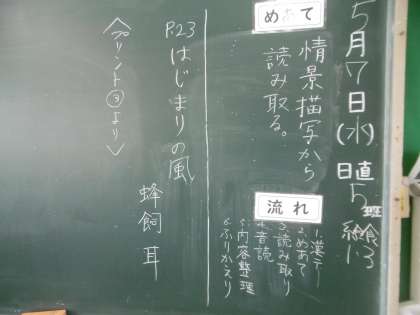 5月7日(水)
日直 5班
給食 1.3
めあて
情景描写から
読み取る。
流れ
1.漢テ
2.めあて
3.読み取り
4.音読
5.内容整理
6.ふりかえり
P.23
はじまりの風
蜂飼耳
〈プリント③より〉